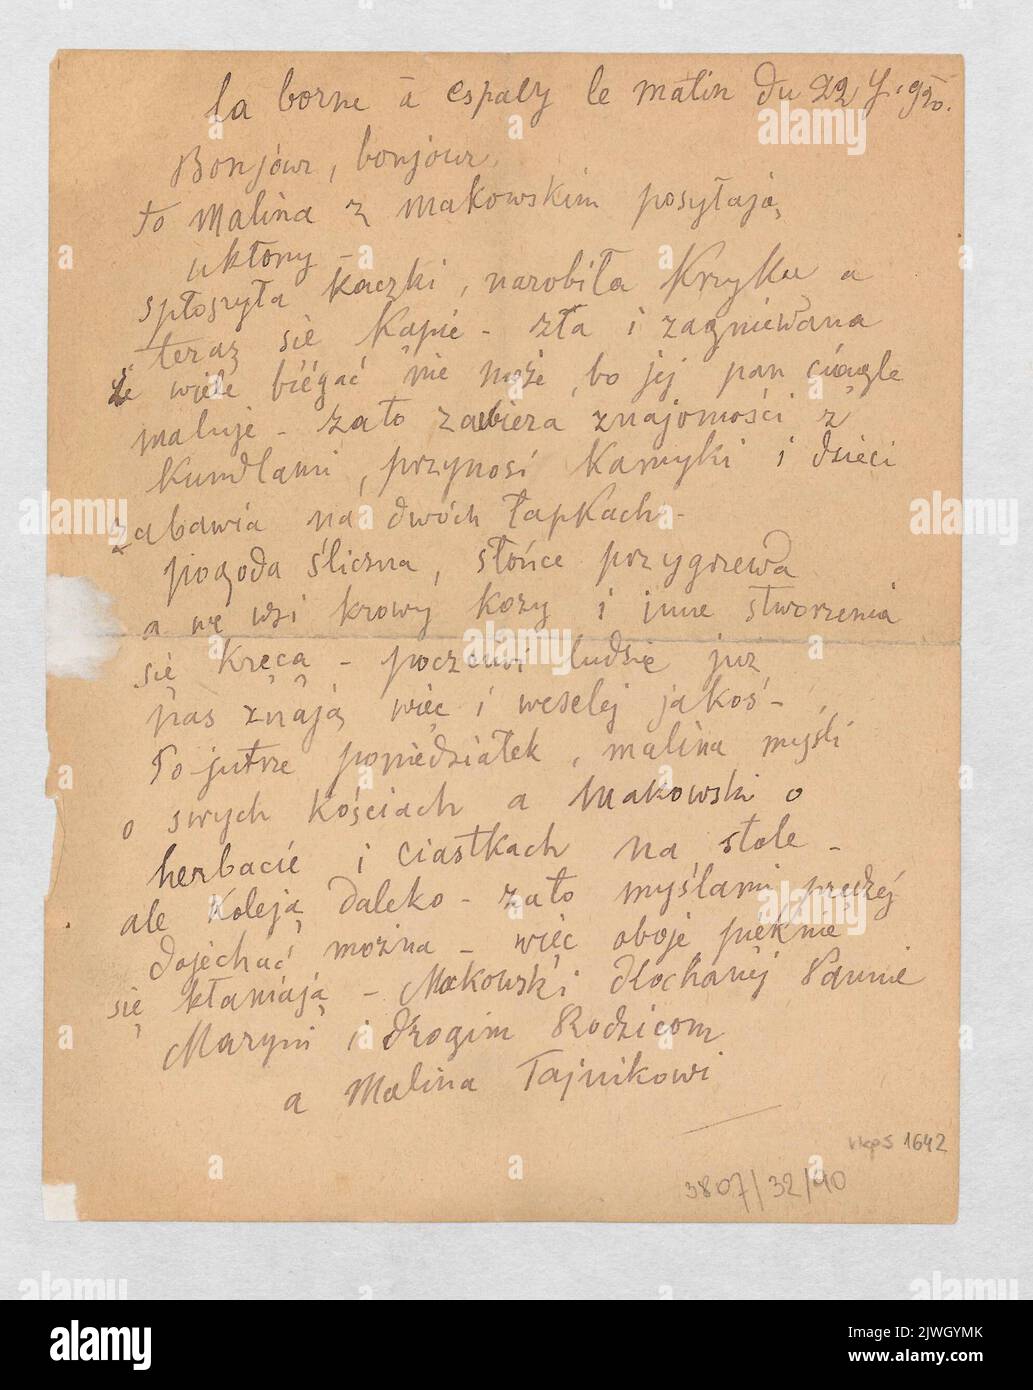 la borne à espaly le matin du 22
Bonjour, bonjour
to Malina z Makowskim posyłają
ukłony -
spłoszyła kaczki, narobiła Krzyku a
teraz się Kąpie - zła i zagniewana
że wiele biégać nie może, bo jej pan ciągle
maluje - zato zabiera znajomości z
Kundlami, przynosi Kamyki i dzieci
zabawia na dwóch łapkach -
pogoda śliczna, słońce przygrzewa
a we wsi krowy kozy i inne stworzenia
się kręcą - poczciwi ludzie już
nas znają więc i weselej jakoś -
To jutrze poniedziałek, malina myśli
o swych kościach a Makowski o
herbacie i ciastkach na stole -
ale Koleją daleko - zato myślami prędzéj
dojechać można - więc oboje pięknie
się kłaniają - Makowski Pannie
Maryni i drogim Rodzicom
a Malina Tajnikowi
rkps 1642
3807/32/40
alamy
Image ID: 2JWGYMK
www.alamy.com